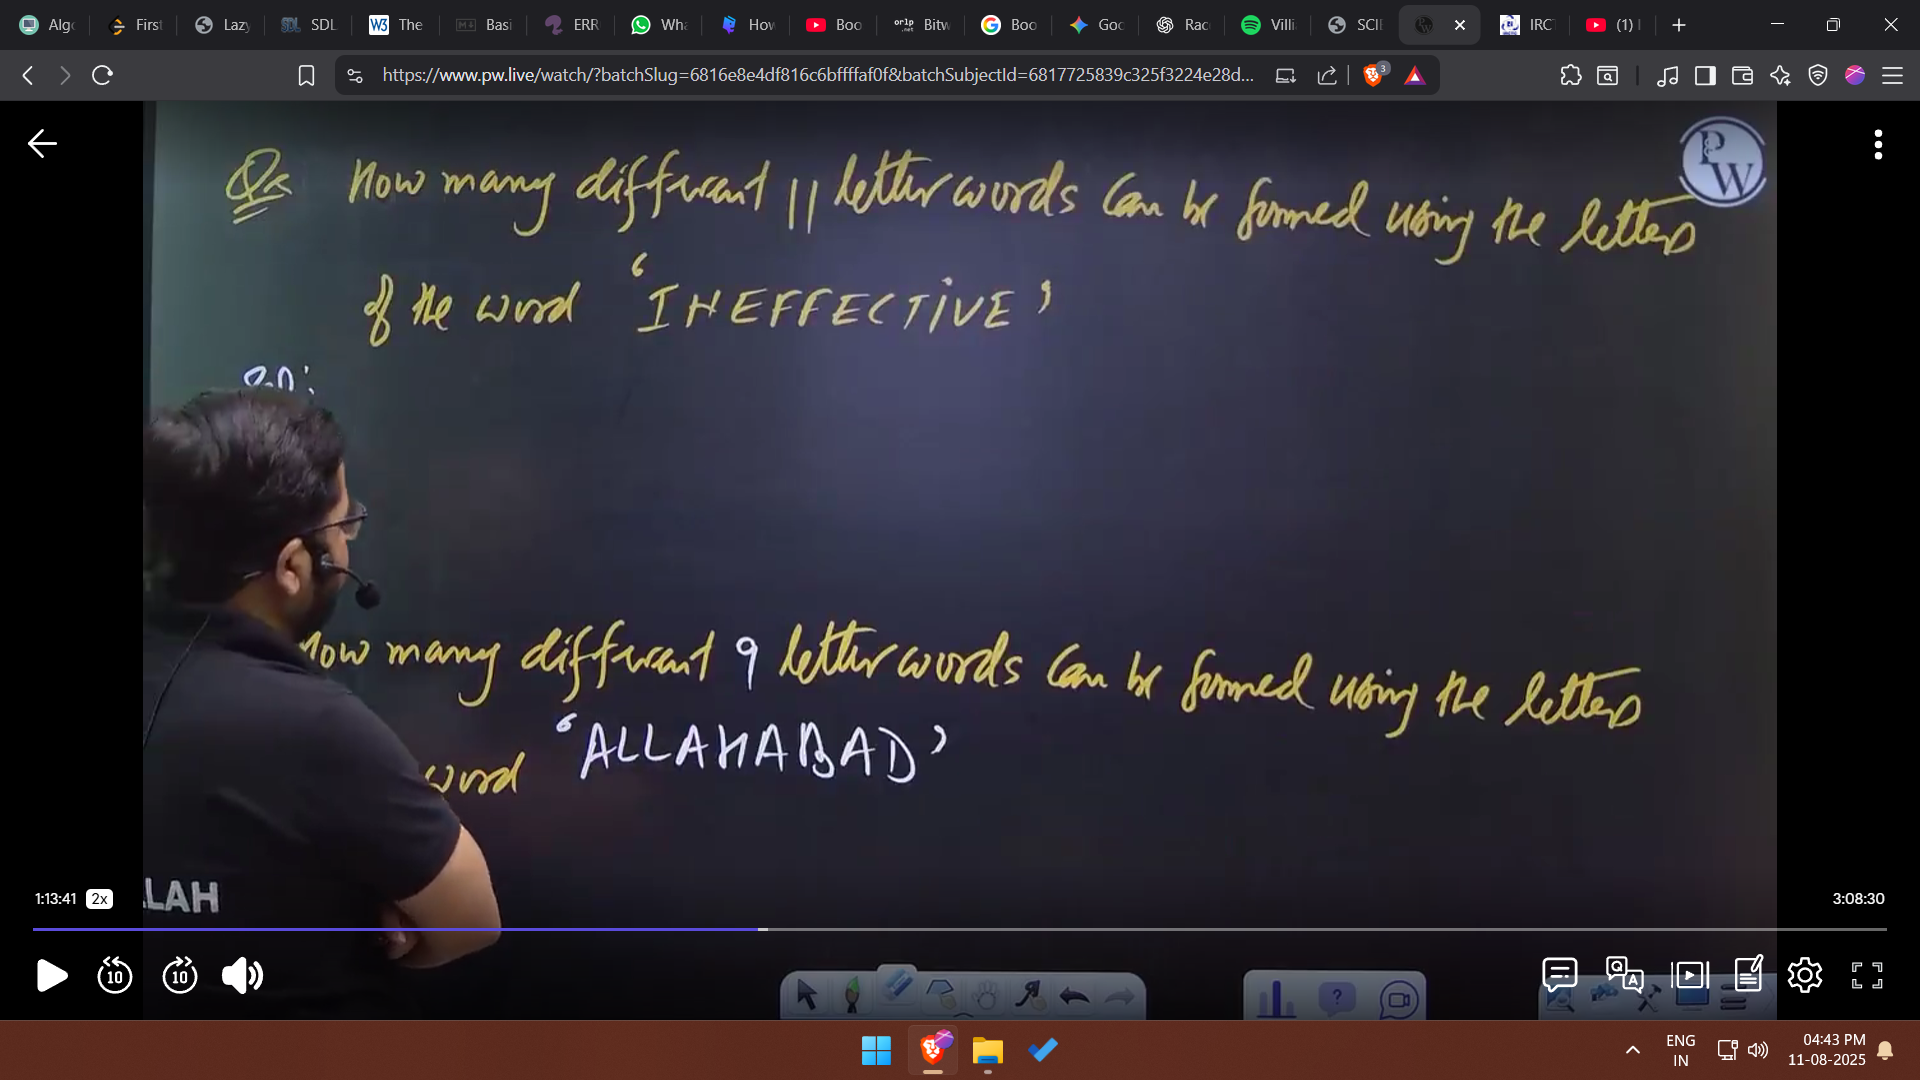 Algo
First
Lazy
SDL
W3 The
Basi
ERR
Wha
How
Boo
orlp .net Bitw
Boo
Goo
Rac
Villi
SCIE
IRCT
(1)
https://www.pw.live/watch/?batchSlug=6816e8e4df816c6bffffaf0f&batchSubjectId=6817725839c325f3224e28d...
3
PW
Qs How many different 11 letter words can be formed using the letters
of the word 'INEFFECTIVE'
Sol:
How many different 9 letter words can be formed using the letters
word 'ALLAHABAD'
LLAH
1:13:41 2x 3:08:30
10 10
ENG
IN
04:43 PM
11-08-2025